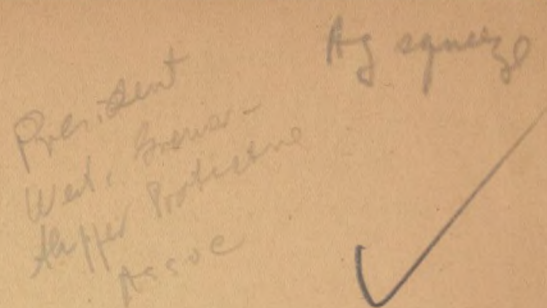 Ag squeeze
President
West. Grower-
Shipper Protective
Assoc